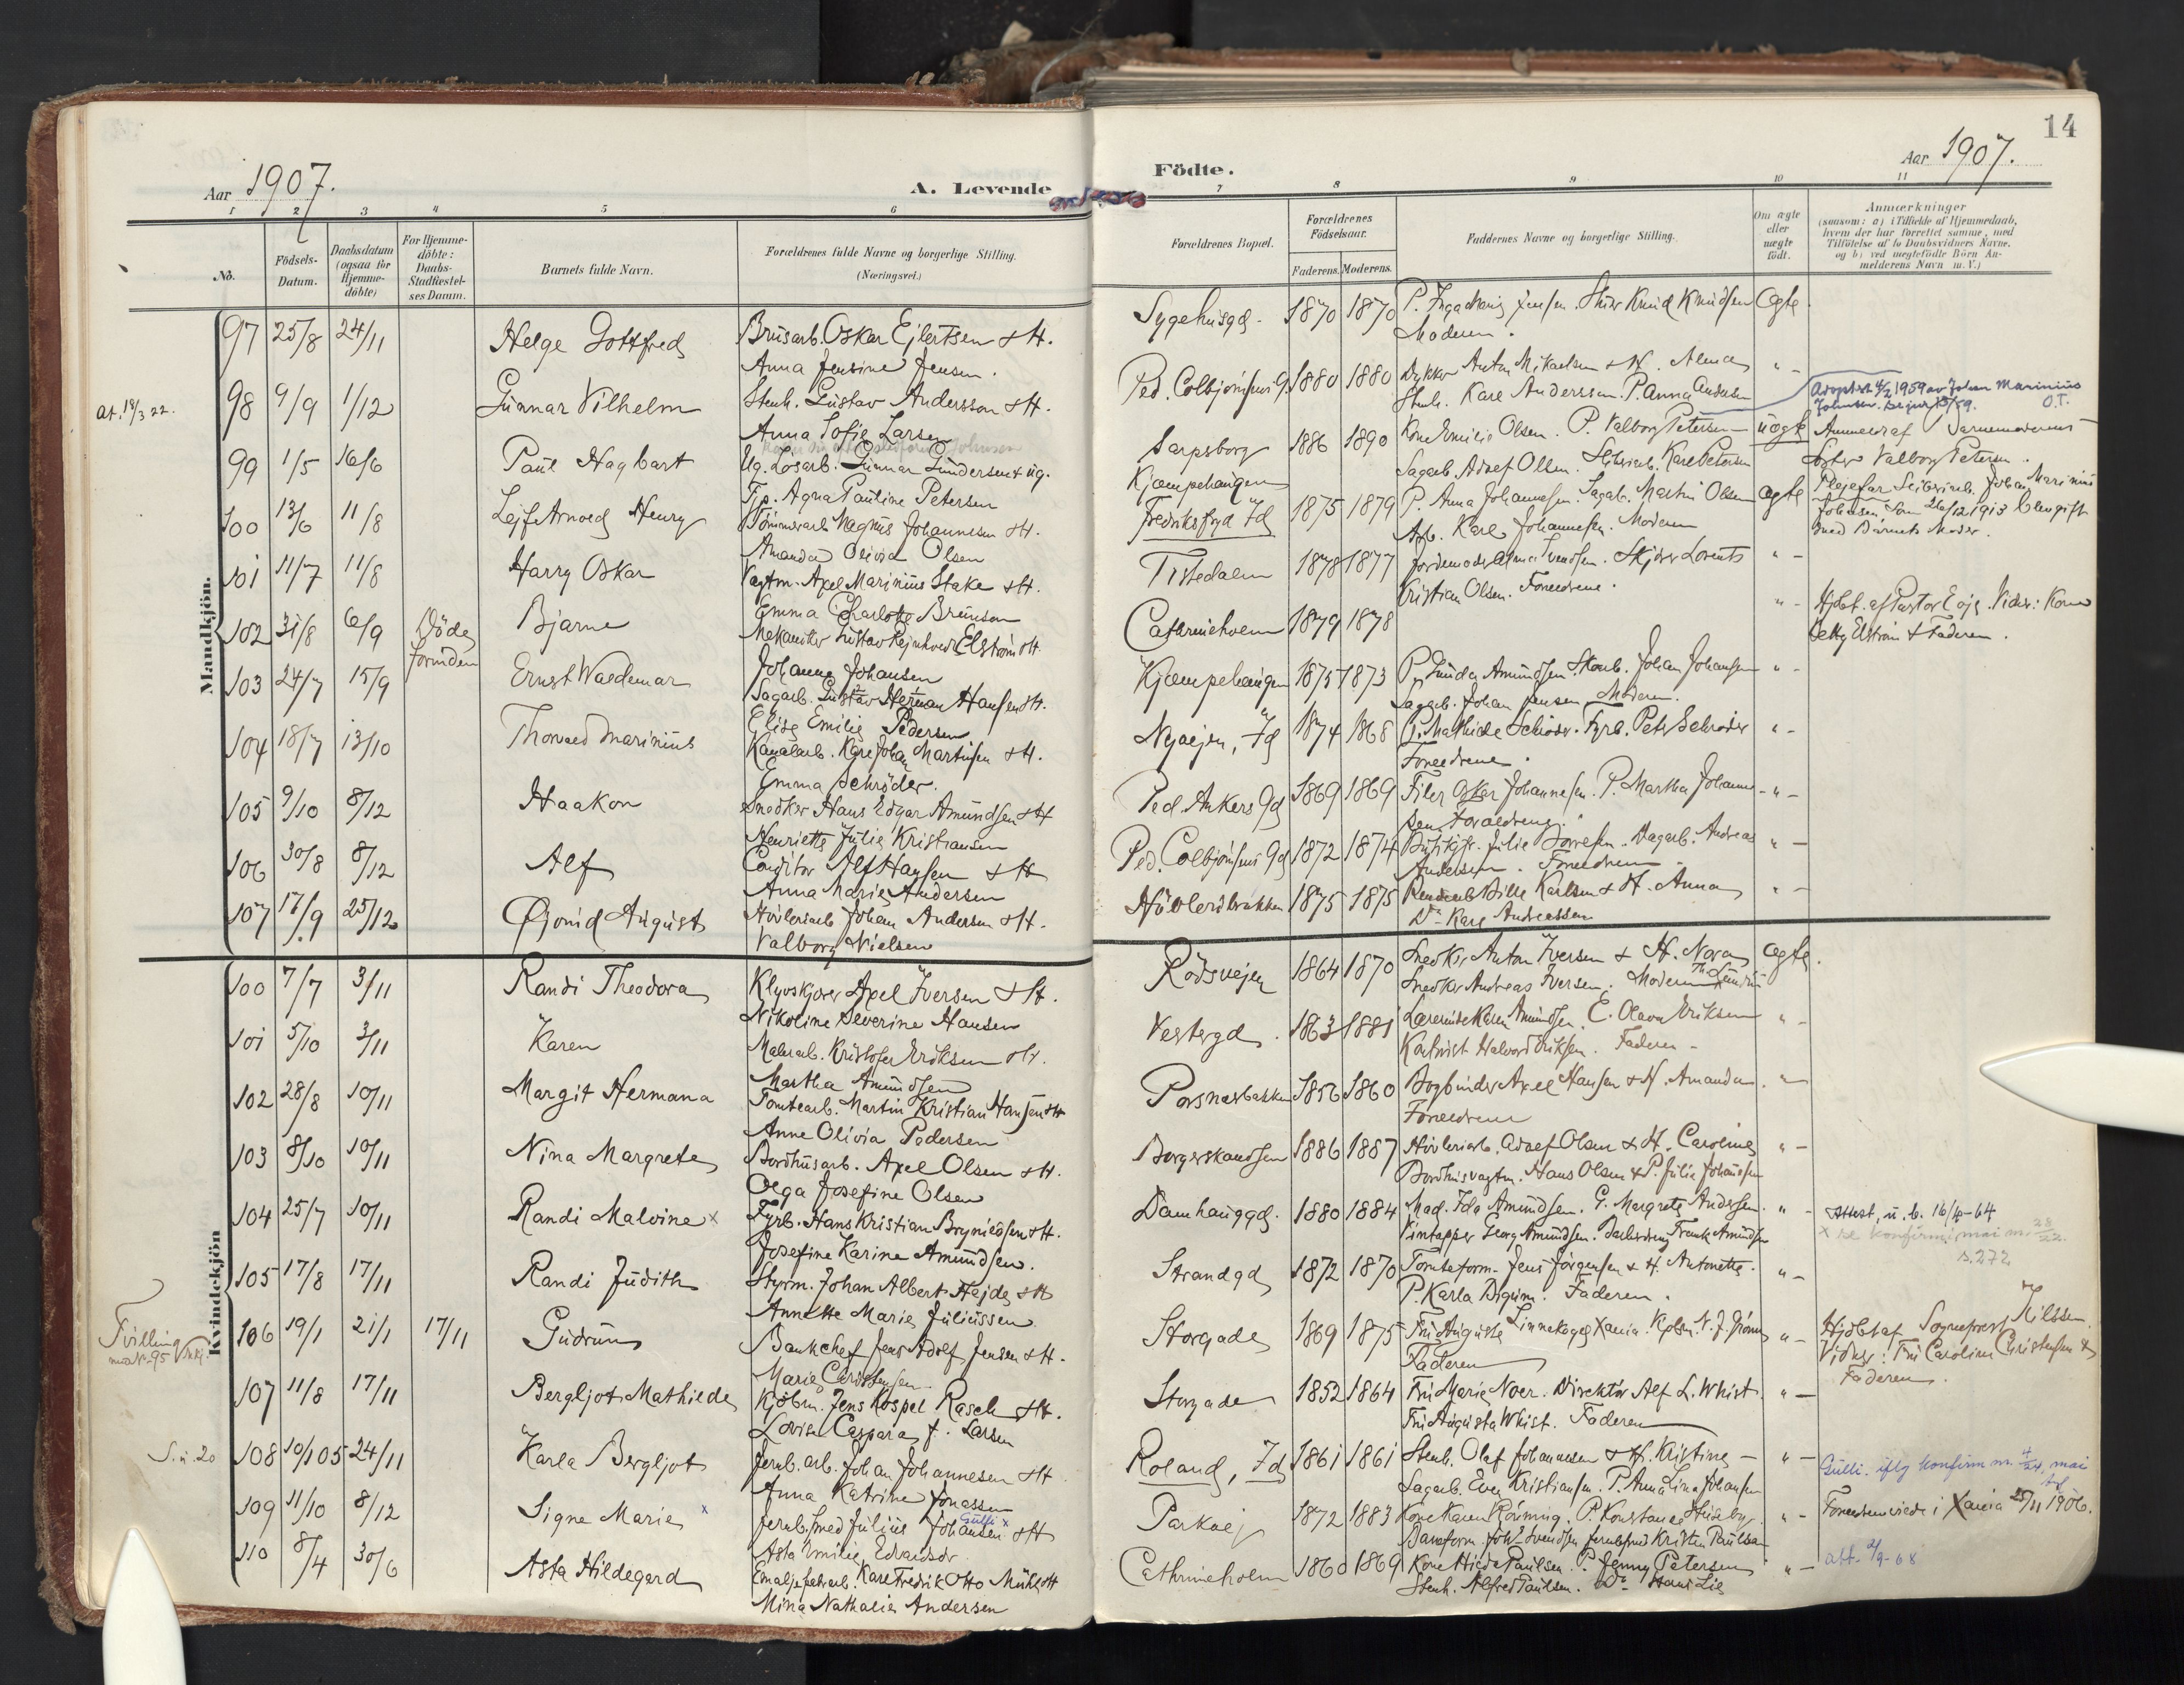 14
Aar 1907.
A. Levende
Födte.
Aar 1907.
1 2 3 4 5 6
7 8 9 10 11
No.
Födsels-
Datum.
Daabsdatum
(ogsaa for
Hjemme-
döbte)
For Hjemme-
döbte:
Daabs-
Stadfæstel-
ses Datum.
Barnets fulde Navn.
Forældrenes fulde Navne og borgerlige Stilling.
(Næringsvei.)
Forældrenes Bopæl.
Forældrenes
Födselsaar.
Faderens. Moderens.
Faddernes Navne og borgerlige Stilling.
Om ægte
eller
uægte
födt.
Anmærkninger
(saasom: a) i Tilfælde af Hjemmedaab,
hvem der har forrettet samme, med
Tilföielse af to Daabsvidners Navne.
og b) ved uegtefödte Börn An-
melderens Navn m. V.)
Mandkjön.
97 25/8 24/11 Helge Gottfred Brusarb. Oskar Ejlertsen & H.
Anna Jensine Jensen.
Sygehusgd. 1870 1870 Knud Knudsen Ægte.
Moderen.
at. 18/3 22.
98 9/9 1/12 Gunnar Vilhelm Stenh. Gustav Andersson & H.
Anna Sofie Larsen
Ped. Colbjørnsens G. 1880 1880 Dykker Anton Mikaelsen & H. Alma " -
Stenh. Karl Anderssen. P. Anna Andersen
99 1/5 16/6 Paul Hagbart Ug. Losarb. Gunnar Gundersen & ug.
Tjp. Agna Pauline Petersen
Sarpsborg 1886 1890 Kone Emilie Olsen. P. Valborg Petersen uægte
Kjæmpehaugen Sagarb. Adolf Olsen. Karl Petersen
Adoptert 4/2 1959 av Johan Marinius
O.T.
Anmeldt af Barnemoderens
Søster Valborg Petersen.
Plejefar Johan Marinius
Johnsen som 26/12 1913 blev gift
med Barnets Moder.
100 13/6 11/8 Lejf Arnold Henry Tömmerarb. Magnus Johannesen & H.
Amanda Olivia Olsen
Fredriksstad Id 1875 1879 P. Anna Johannesen. Sagarb. Martin Olsen Ægte
Arb. Karl Johannesen. Moderen
101 11/7 11/8 Harry Oskar Vagtm. Axel Marinius Stake & H.
Emma Charlotte Brunson
Tistedalen 1878 1877 Jordemoder Alma Svendsen. Skjörer Lorents " -
Kristian Olsen. Forældrene.
102 31/8 6/9 Döde forinden Bjarne Mekaniker Gustav Rejnhard Elström & H.
Johanne Johansen
Cathrineholm 1879 1878 " - Hjdbt. af Pastor Eoje. Vidner: Kone
Betty Elström & Faderen.
103 24/7 15/9 Ernst Waldemar Sagarb. Gustav Herman Hansen & H.
Elise Emilie Pedersen
Kjæmpehaugen 1875 1873 P. Gunda Amundsen. Stenh. Johan Johansen " -
Sagarb. Johan Jensen. Moderen.
104 18/7 13/10 Thorvald Marinius Kanalarb. Karl Johan Martinsen & H.
Emma Schröder.
Nyvejen, Id 1874 1868 P. Mathilde Schröder. Fyrb. Peter Schröder " -
Forældrene.
105 9/10 8/12 Haakon Snedker Hans Edgar Amundsen & H
Henriette Julie Kristiansen
Ped. Ankers Gd 1869 1869 Filer Oskar Johannesen. P. Martha Johanne- " -
sen. Forældrene.
106 30/8 8/12 Alf Conditor Alf Hansen & H
Anna Marie Andersen
Ped. Colbjörnsens Gd 1872 1874 Julie Borresen. Dagarb. Andreas " -
Andersen. Forældrene
107 17/9 25/12 Øjvind August Høvleriarb Johan Andersen & H.
Valborg Nielsen
Høvleribakken 1875 1875 Bille Karlsen & H. Anna " -
Do Karl Andreassen
Kvindekjön
100 7/7 3/11 Randi Theodora Klyvskjærer Axel Iversen & H.
Nikoline Severine Hansen
Rödsvejen 1864 1870 Snedker Anton Iversen & H. Nora Ægte.
Snedker Andreas Iversen. Moderen
101 5/10 3/11 Karen Malerarb. Kristofer Eriksen & H.
Martha Amundsen
Vestergd. 1863 1881 Lærerinde Karen Amundsen. E. Olava Eriksen " -
Halvord Eriksen. Faderen -
102 28/8 10/11 Margit Hermana Tomtearb. Martin Kristian Hansen & H
Anne Olivia Pedersen
Porsnesbakken 1856 1860 Bogbinder Axel Hansen & H. Amanda. " -
Forældrene
103 8/10 10/11 Nina Margrete Bordhusarb. Axel Olsen & H.
Olga Josefine Olsen
Borgerskandsen 1886 1887 Høvleriarb. Adolf Olsen & H. Caroline " -
Bordhusvagtm. Hans Olsen & P. Julie Johansen
104 25/7 10/11 Randi Malvine x Fyrb. Hans Kristian Brynildsen & H.
Josefine Karine Amundsen.
Damhauggd. 1880 1884 Mad. Ida Amundsen. G. Margrete Andersen. " -
Vintapper Georg Amundsen. Frank Amundsen
Attest, u. b. 16/4-64
x se konfirm. mai nr. 28/22.
s. 272
105 17/8 17/11 Randi Judith Styrm. Johan Albert Hejde & H
Annette Marie Juliussen
Strandgd 1872 1870 Tomteform. Jens Jörgensen & H. Antonette. " -
P. Karla Bryum. Faderen.
Tvilling
m. Nr. 95 Mkj.
106 19/1 21/1 17/11 Gudrun Bankchef Jens Adolf Jensen & H.
Marie Christensen
Storgade 1869 1875 Fru Auguste Linnekogel Xania. Kjøbm. N. J. Grönn " -
Faderen
Hjdbt af Sogneprest Nilssen.
Vidner: Fru Caroline Christensen &
Faderen.
107 11/8 17/11 Bergljot Mathilde Kjöbm. Jens Kospel Rasch & H.
Lovise Caspara f. Larsen
Storgade 1852 1864 Fru Marie Noer. Direktör Alf L. Whist. " -
Fru Augusta Whist. Faderen
S. u. 20
108 10/1 05 24/11 Karla Bergljot Jernb. arb. Johan Johannesen & H
Anna Katrine Jonassen
Roland, Id 1861 1861 Stenh. Olaf Johannesen & H. Kristine - " -
Sagarb. Even Kristiansen. P. Anna Lina Johansen
109 11/10 8/12 Signe Marie x Jernb. smed Julius Johansen & H
Gulli x
Asta Emilie Edvardsdr
Parkvej 1872 1883 Kone Karen Rönning. P. Konstance Huseby. " -
Gulli. iflg konfirm nr. 4/24, mai
Forældrene viede i Xania 25/11 1906.
110 8/4 30/6 Asta Hildegard Emaljefabarb. Karl Fredrik Otto Mühl & H
Mina Nathalie Andersen
Cathrineholm 1860 1869 Kone Hilda Paulsen. P. Jenny Petersen " -
Stenh. Alfred Paulsen. Do Hans Lie
att. 2/9-68